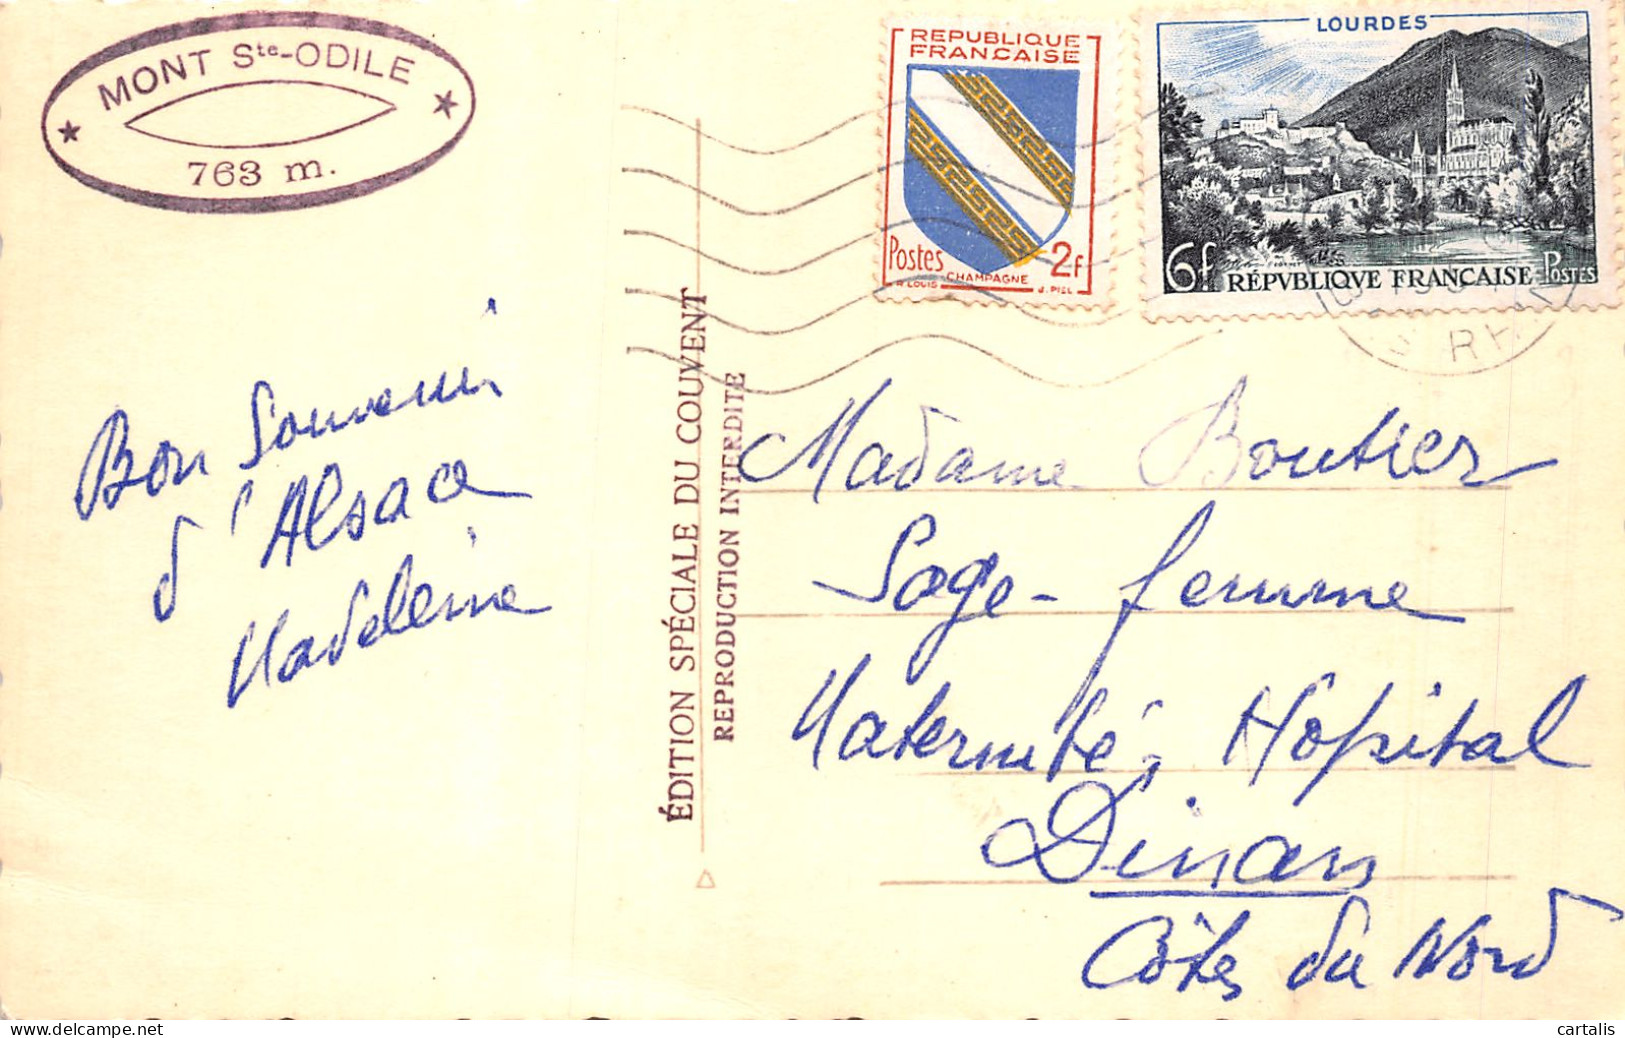 MONT Ste-ODILE
763 m.
REPUBLIQUE
FRANCAISE
Postes 2f
CHAMPAGNE
R. LOUIS J. PIEL
LOURDES
6f RÉPVBLIQVE FRANÇAISE POSTES
Bon Souvenir
d'Alsace
Madeleine
ÉDITION SPÉCIALE DU COUVENT
REPRODUCTION INTERDITE
Madame Boutier
Sage-femme
Maternité, Hôpital
Dinan
Côtes du Nord
cartalis